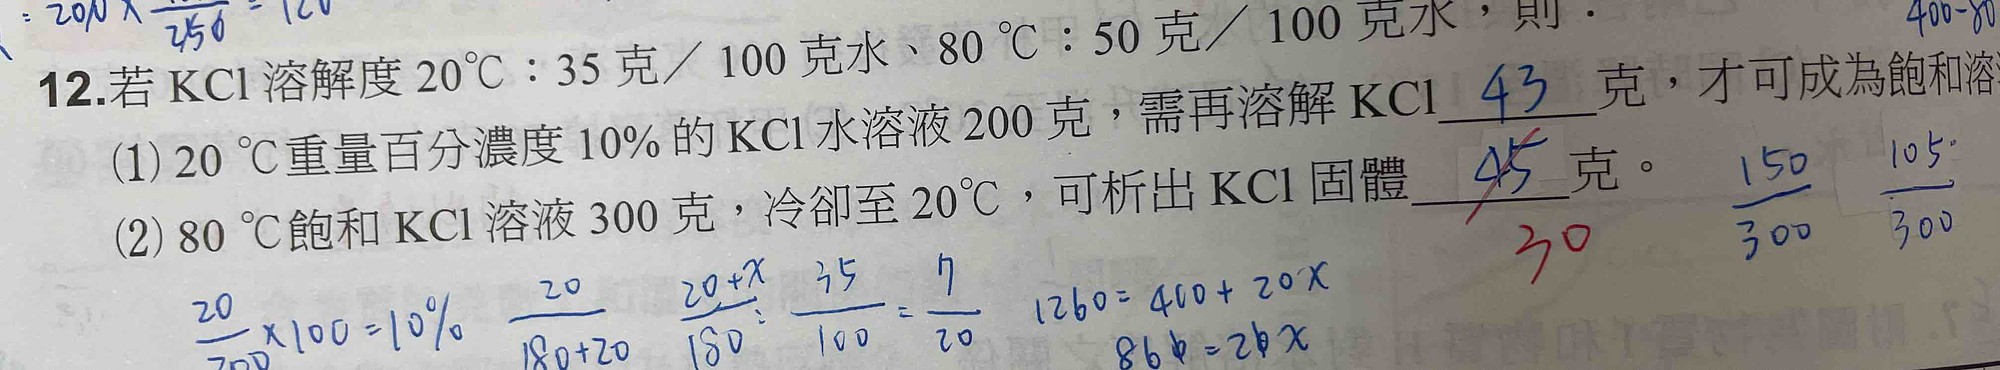 = 200 × 
250
= 120
400-80
12.若 KCl 溶解度 20℃：35 克／100 克水、80 ℃：50 克／100 克水，則：
(1) 20 ℃重量百分濃度 10% 的 KCl 水溶液 200 克，需再溶解 KCl 43 克，才可成為飽和溶
(2) 80 ℃飽和 KCl 溶液 300 克，冷卻至 20℃，可析出 KCl 固體 45 克。
30
150/300
105/300
20/200 × 100 = 10%
20/180+20
20+x/180 : 35/100 = 7/20
1260 = 400 + 20x
860 = 20x